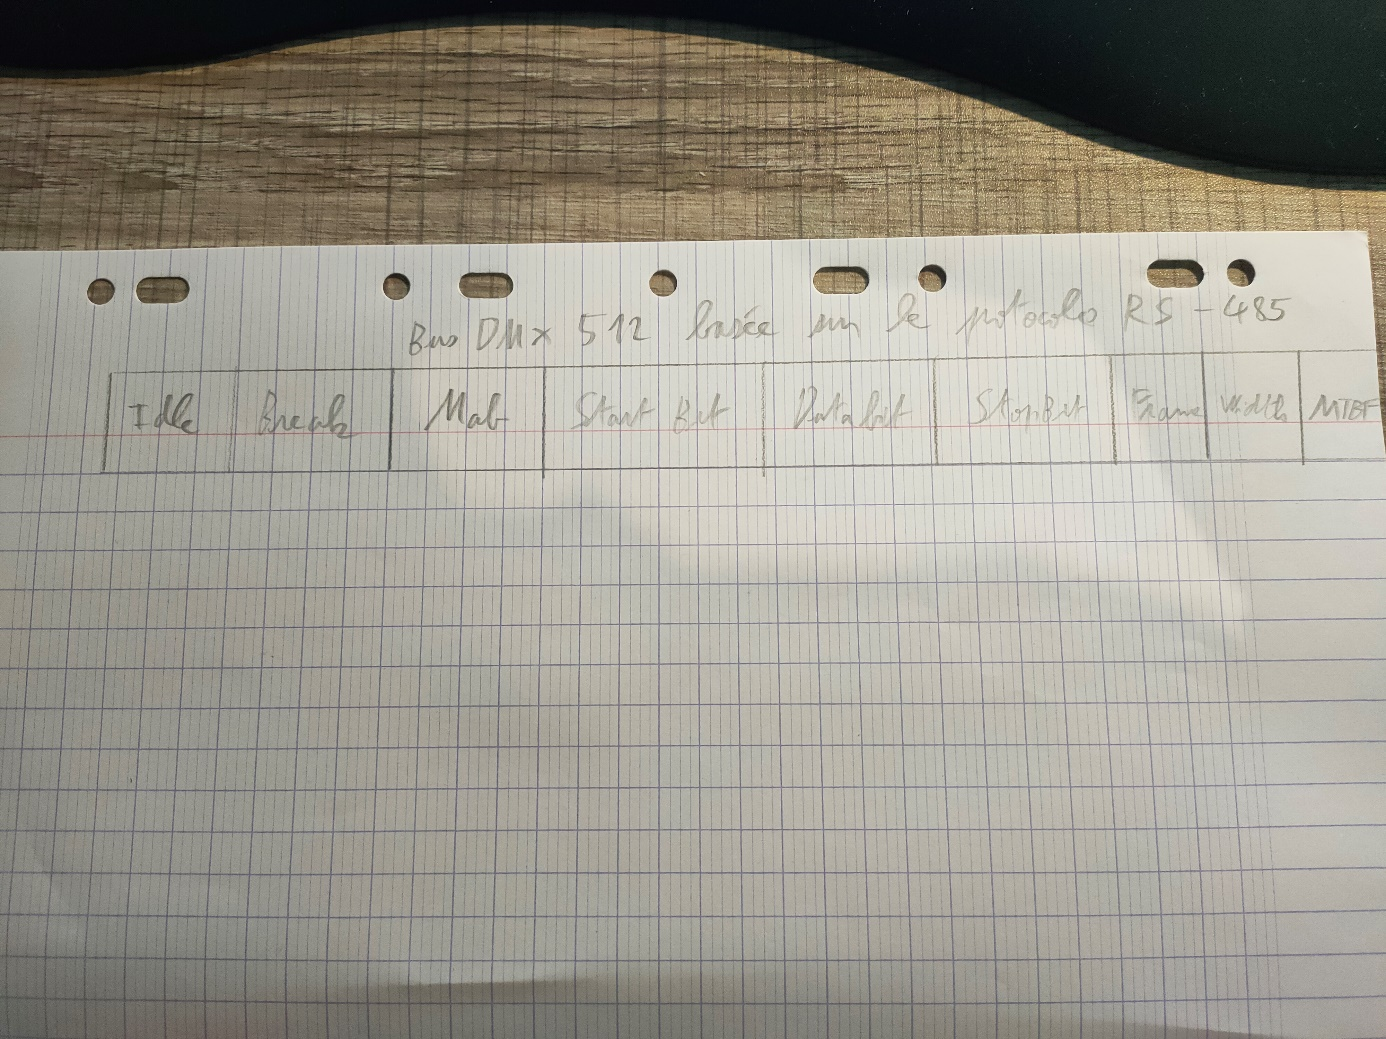 Bus DMX 512 basée sur le protocole RS-485
Idle Break Mab Start Bit Data bit Stop Bit Frame Width MTBF